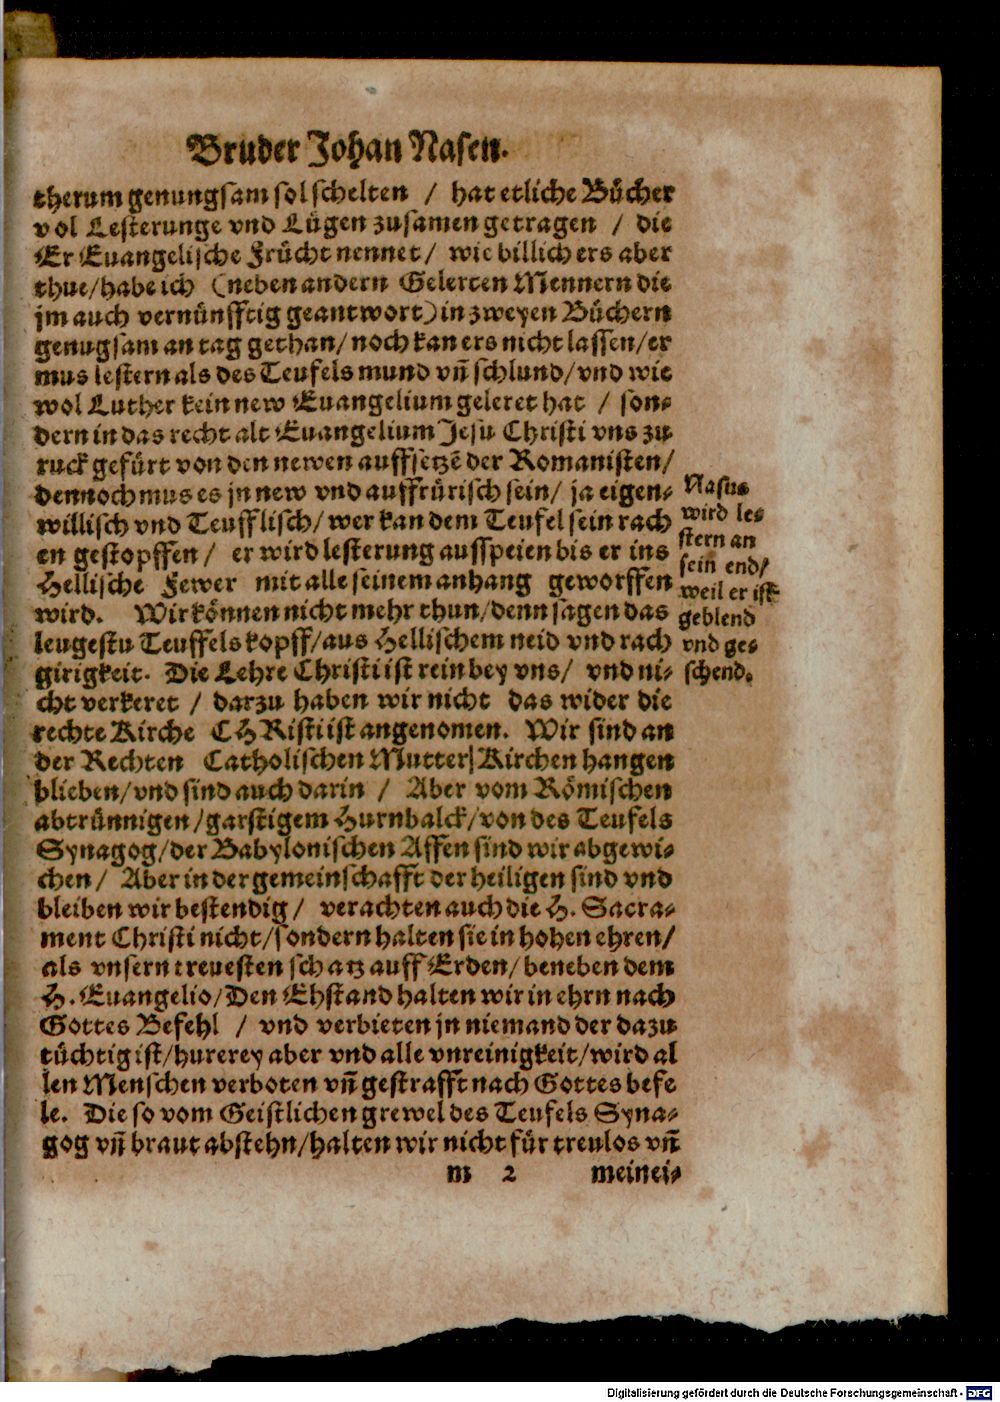 Bruder Johan Nasen.
therum genungsam sol schelten / hat etliche Bücher
vol Lesterunge vnd Lügen zusamen getragen / die
Er Euangelische Frücht nennet / wie billich ers aber
thue/habe ich (neben andern Gelerten Mennern die
jm auch vernünfftig geantwort) in zweyen Büchern
genugsam an tag gethan/ noch kan ers nicht lassen/er
mus lestern als des Teufels mund vñ schlund/vnd wie
wol Luther kein new Euangelium geleret hat / son-
dern in das recht alt Euangelium Jesu Christi vns zu
ruck gefürt von den newen auffsetzẽ der Romanisten/
dennoch mus es jn new vnd auffrürisch sein/ ja eigen-
willisch vnd Teufflisch/ wer kan dem Teufel sein rach
en gestopffen / er wird lesterung ausspeien bis er ins
Hellische Fewer mit alle seinem anhang geworffen
wird. Wir können nicht mehr thun/denn sagen das
leugestu Teuffels kopff/aus Hellischem neid vnd rach
girigkeit. Die Lehre Christi ist rein bey vns/ vnd ni-
cht verkeret / darzu haben wir nicht das wider die
rechte Kirche CHRisti ist angenomen. Wir sind an
der Rechten Catholischen Mutter/Kirchen hangen
blieben/vnd sind auch darin / Aber vom Römischen
abtrünnigen/garstigem Hurnbalck/von des Teufels
Synagog/der Babylonischen Affen sind wir abgewi-
chen/ Aber in der gemeinschafft der heiligen sind vnd
bleiben wir bestendig/ verachten auch die H. Sacra-
ment Christi nicht/sondern halten sie in hohen ehren/
als vnsern treuesten schatz auff Erden/ beneben dem
H. Euangelio/Den Ehstand halten wir in ehrn nach
Gottes Befehl / vnd verbieten jn niemand der dazu
tüchtig ist/hurerey aber vnd alle vnreinigkeit/wird al
len Menschen verboten vñ gestrafft nach Gottes befe
le. Die so vom Geistlichen grewel des Teufels Syna-
gog vñ braut abstehn/halten wir nicht für treulos vñ
m 2 meinei-
Nasus
wird le-
stern an
sein end/
weil er ist
geblend
vnd ge-
schend.
Digitalisierung gefördert durch die Deutsche Forschungsgemeinschaft - DFG